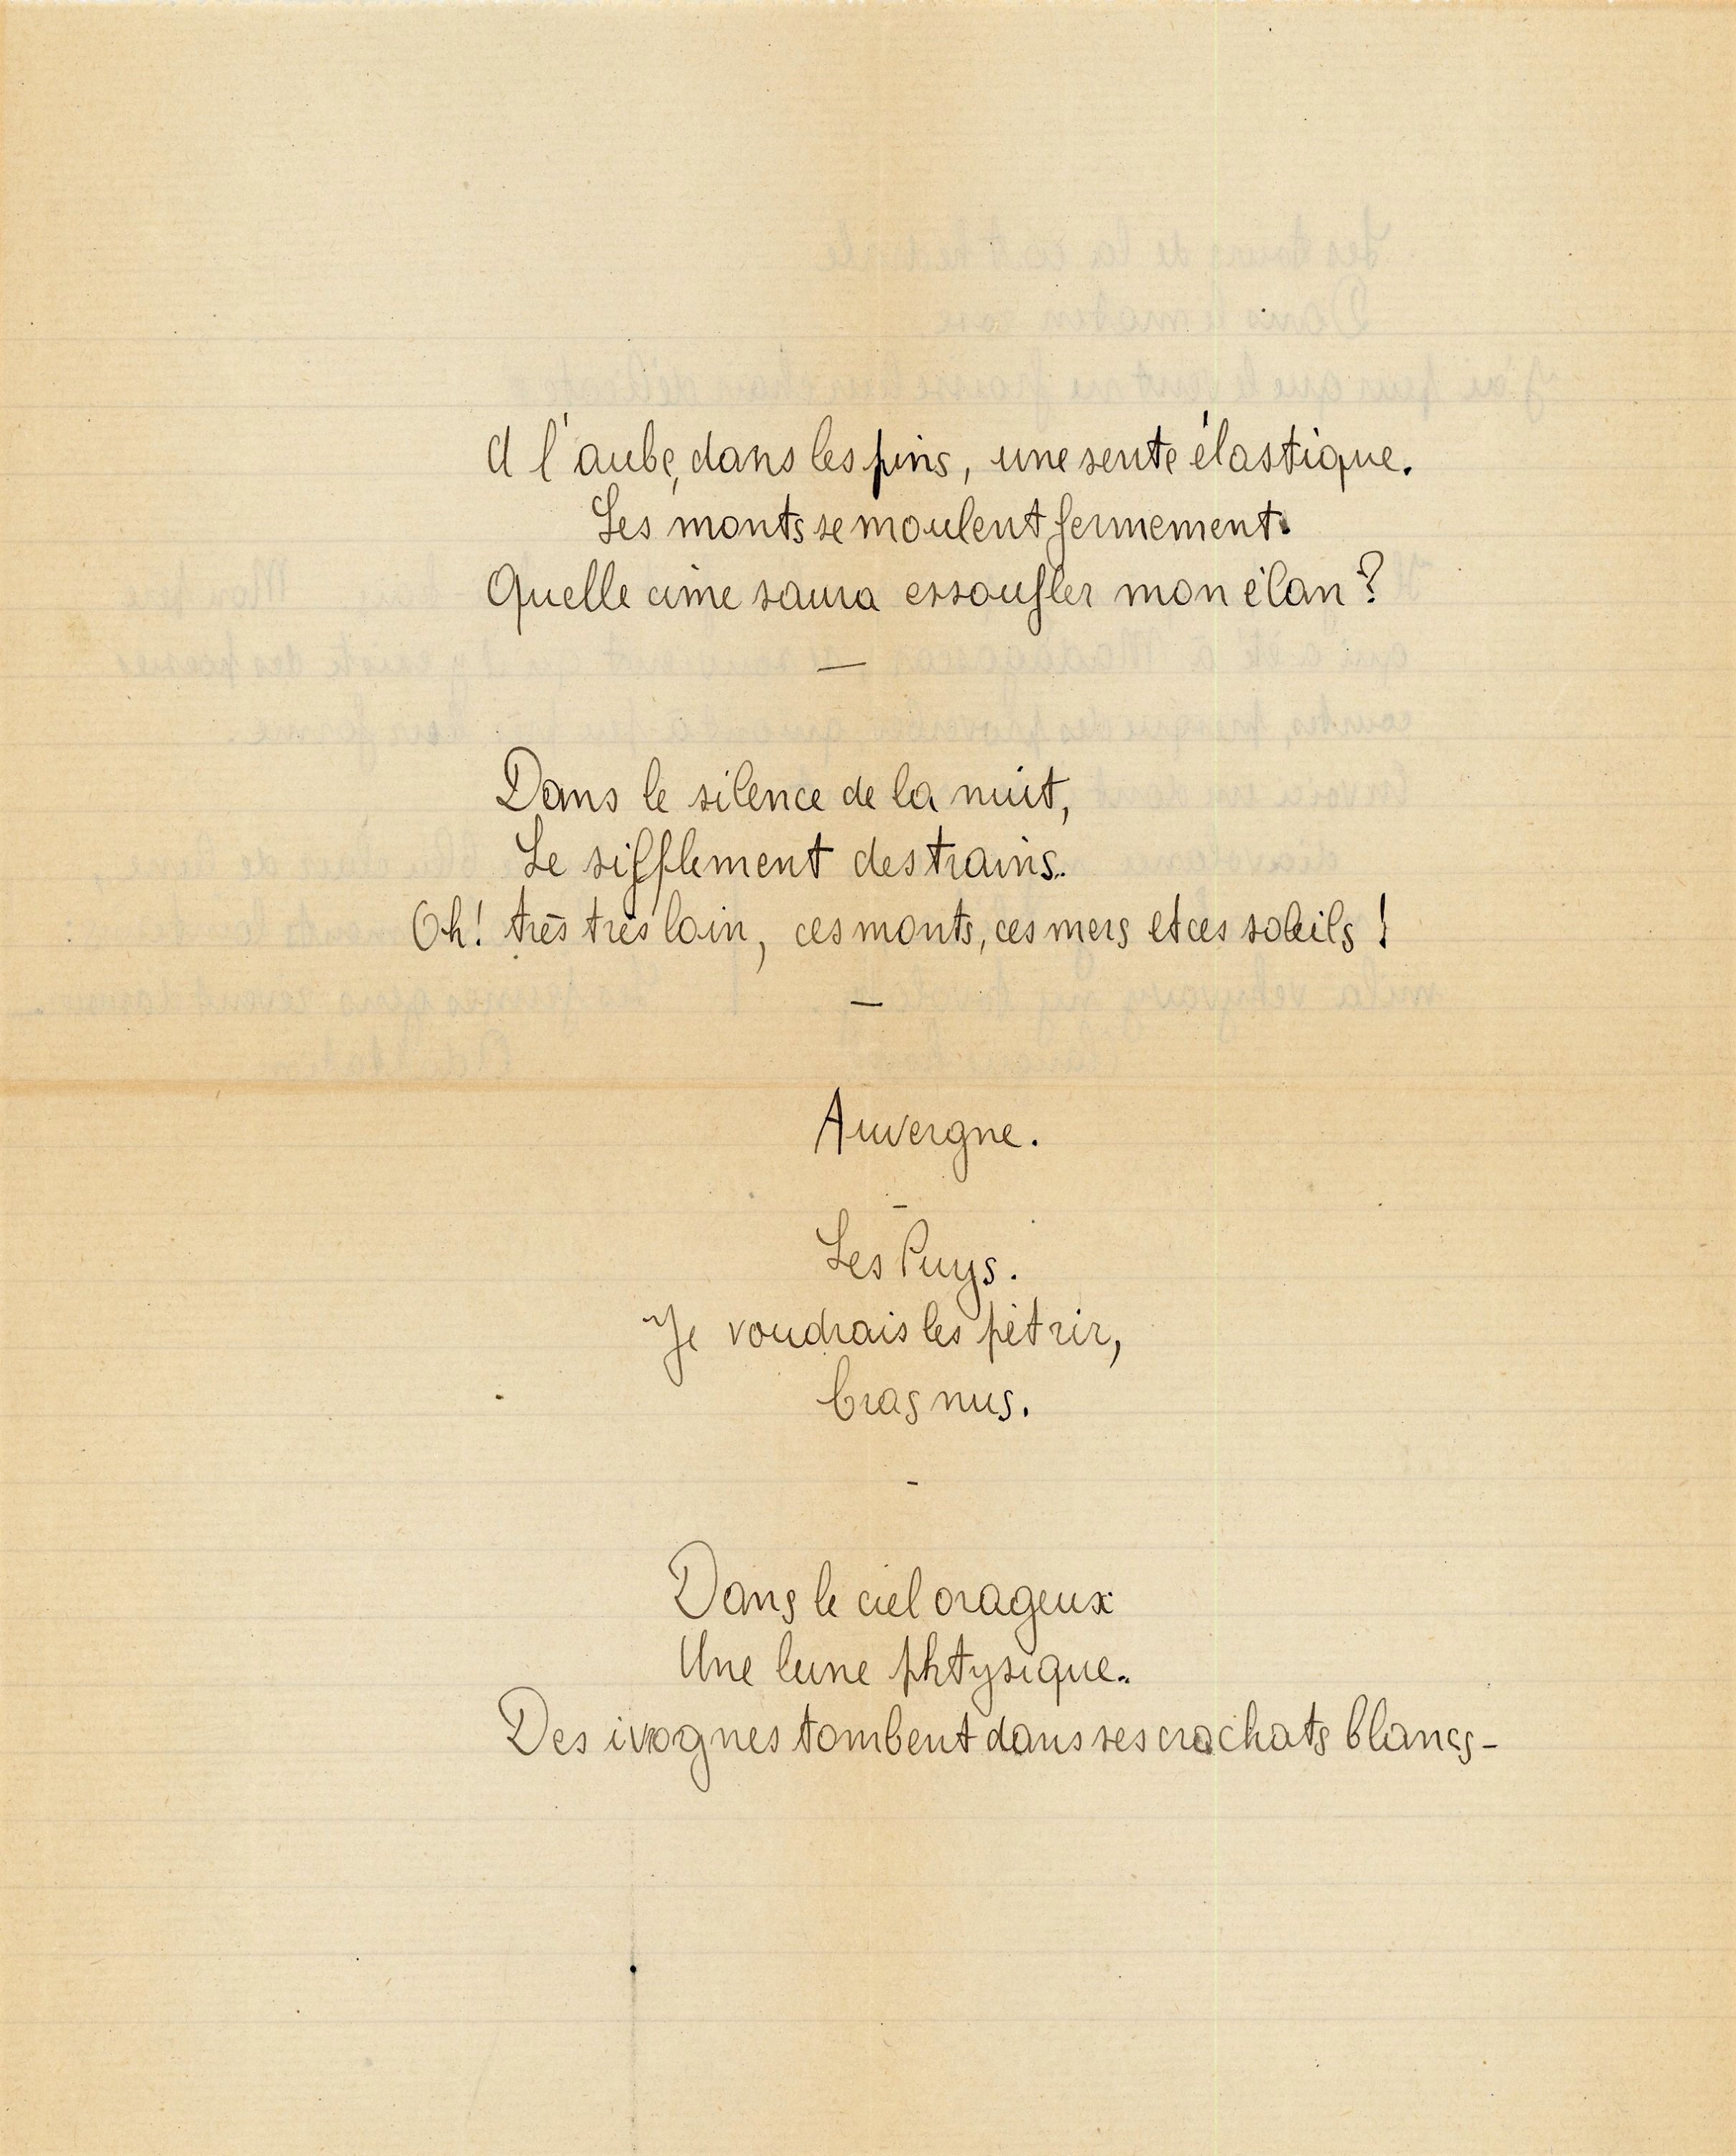 A l'aube, dans les pins, une sente élastique.
Les monts se moulent fermement.
Quelle cime saura essoufler mon élan ?
—
Dans le silence de la nuit,
Le sifflement des trains.
Oh! très très loin, ces monts, ces mers et ces soleils !
—
Auvergne.
-
Les Puys.
Je voudrais les pétrir,
bras nus.
-
Dans le ciel orageux
Une lune phtysique.
Des ivrognes tombent dans ses crachats blancs-